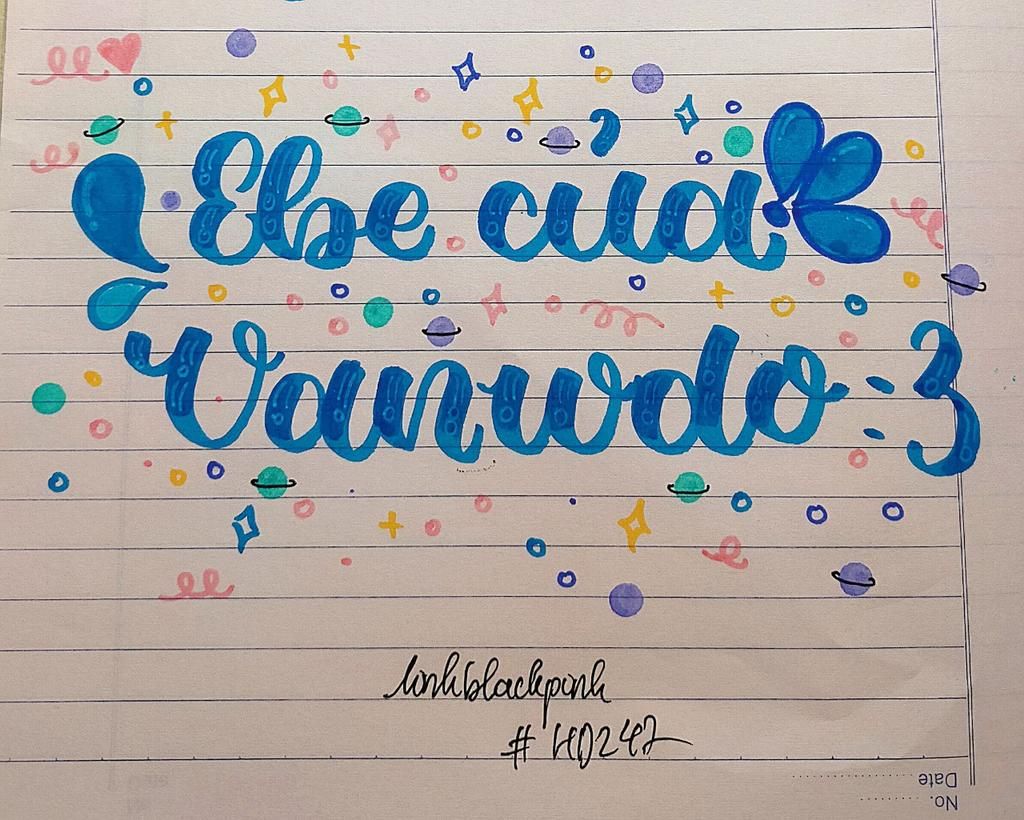 Ebe của
Vanwdo :3
linhblackpink
# HD247
Date
No.